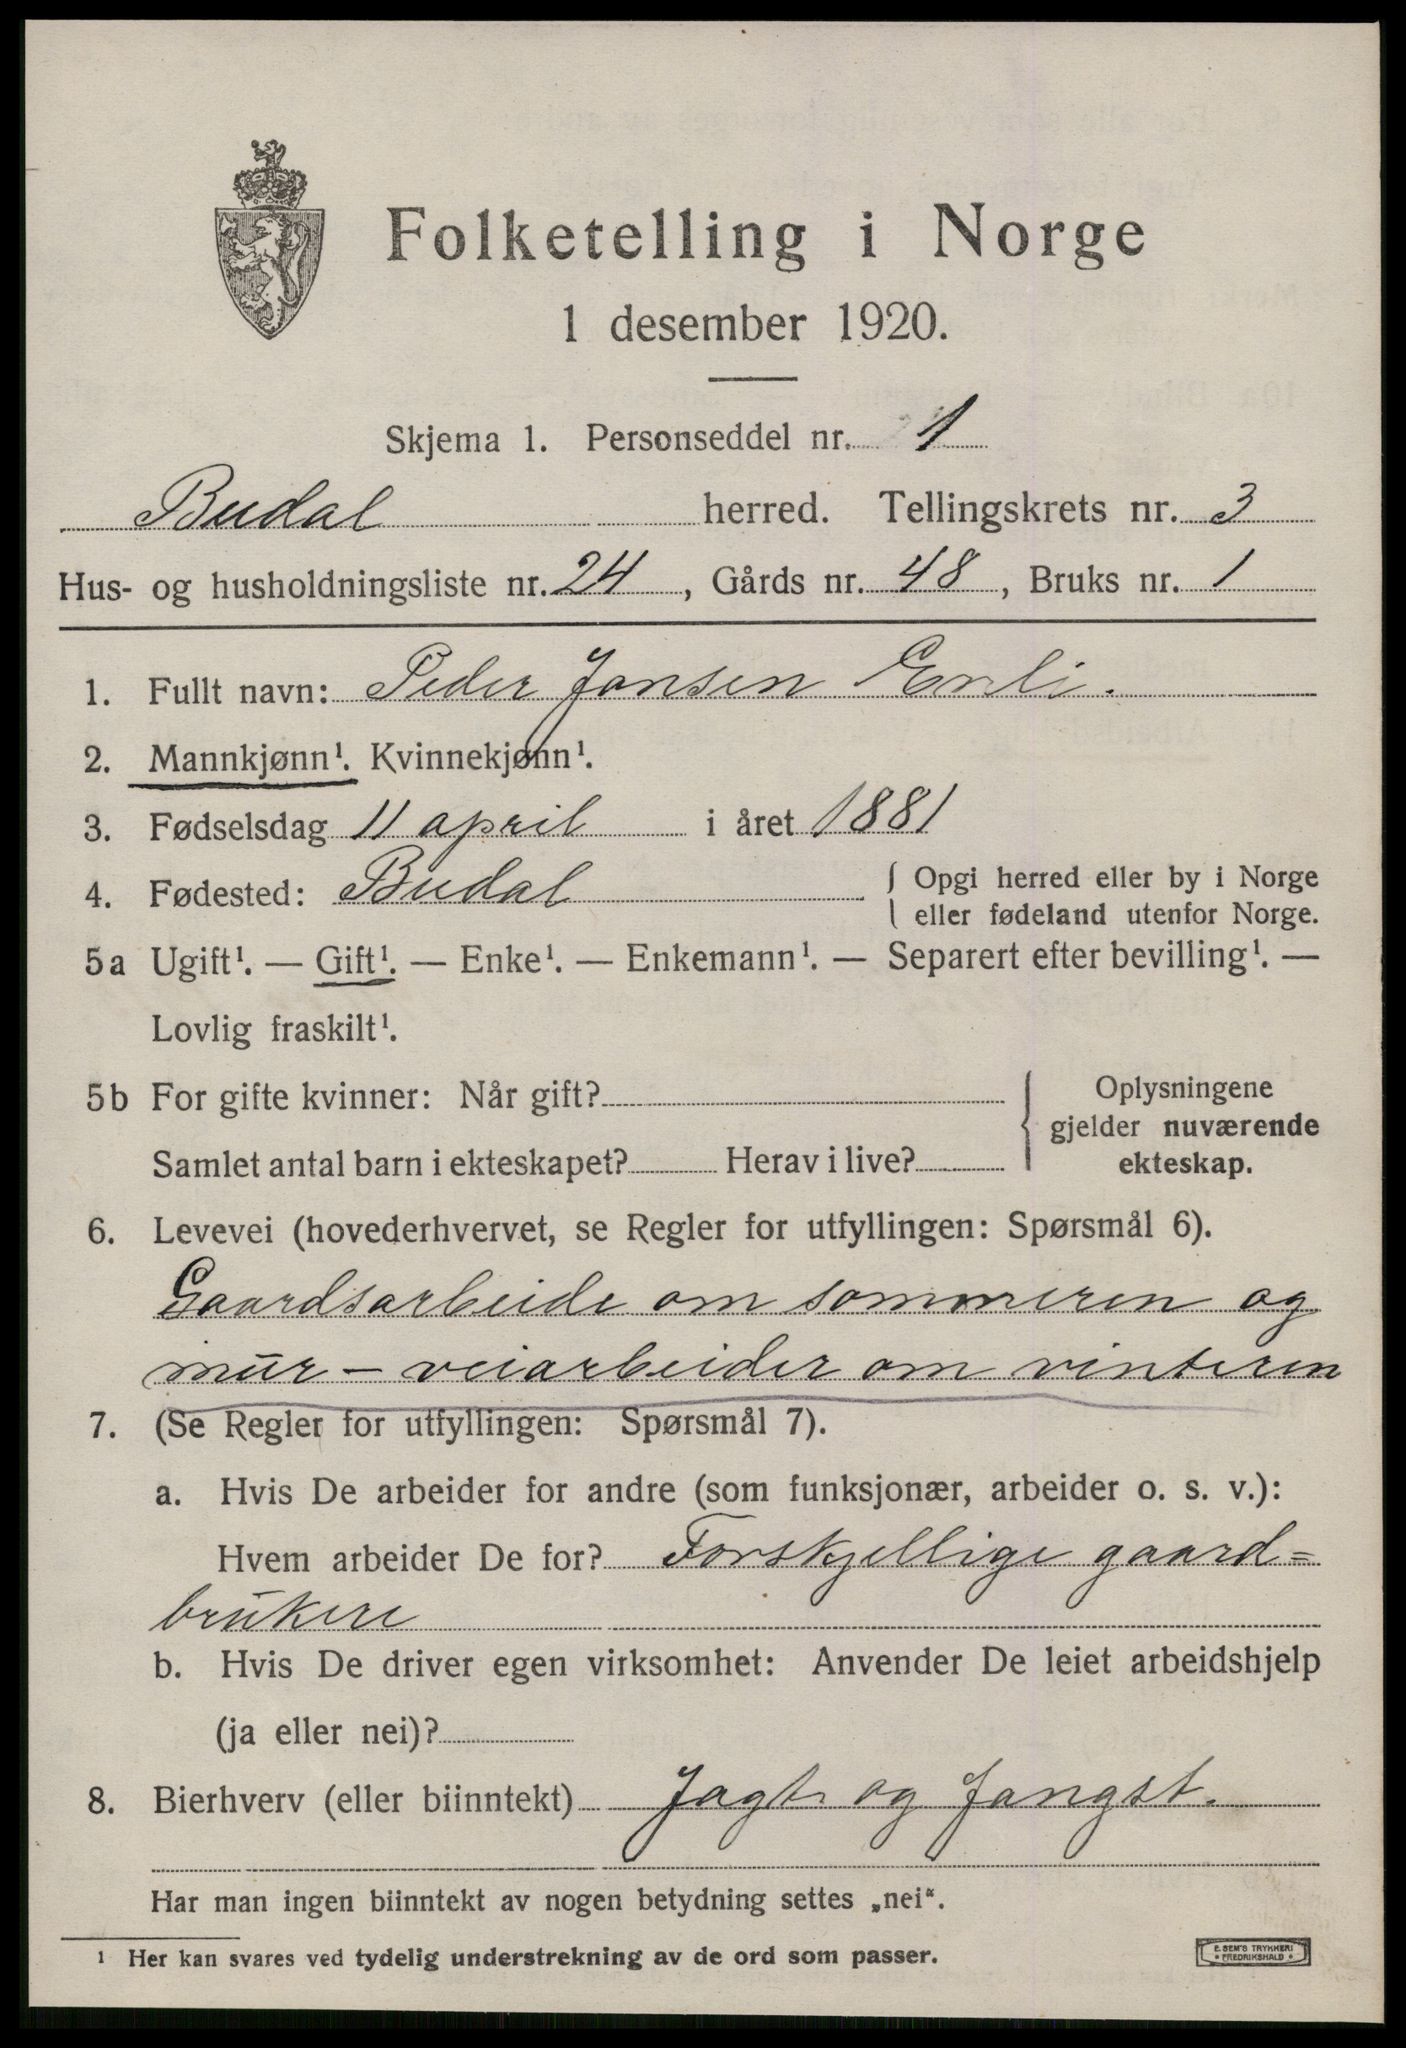 Folketelling i Norge
1 desember 1920.
Skjema 1. Personseddel nr. 1
Budal herred. Tellingskrets nr. 3
Hus- og husholdningsliste nr. 24, Gårds nr. 48, Bruks nr. 1
1. Fullt navn: Peder Jonsen Enli.
2. Mannkjønn¹. Kvinnekjønn¹.
3. Fødselsdag 11 april i året 1881
4. Fødested: Budal { Opgi herred eller by i Norge
eller fødeland utenfor Norge.
5a Ugift¹. — Gift¹. — Enke¹. — Enkemann¹. — Separert efter bevilling¹. —
Lovlig fraskilt¹.
5b For gifte kvinner: Når gift? { Oplysningene
gjelder nuværende
Samlet antal barn i ekteskapet? Herav i live? ekteskap.
6. Levevei (hovederhvervet, se Regler for utfyllingen: Spørsmål 6).
Gaardsarbeide om sommeren og
mur - veiarbeider om vinteren
7. (Se Regler for utfyllingen: Spørsmål 7).
a. Hvis De arbeider for andre (som funksjonær, arbeider o. s. v.):
Hvem arbeider De for? Forskjellige gaard=
brukere
b. Hvis De driver egen virksomhet: Anvender De leiet arbeidshjelp
(ja eller nei)?
8. Bierhverv (eller biinntekt) Jagt og fangst.
Har man ingen biinntekt av nogen betydning settes „nei“.
¹ Her kan svares ved tydelig understrekning av de ord som passer.
E. SEM'S TRYKKERI
• FREDRIKSHALD •